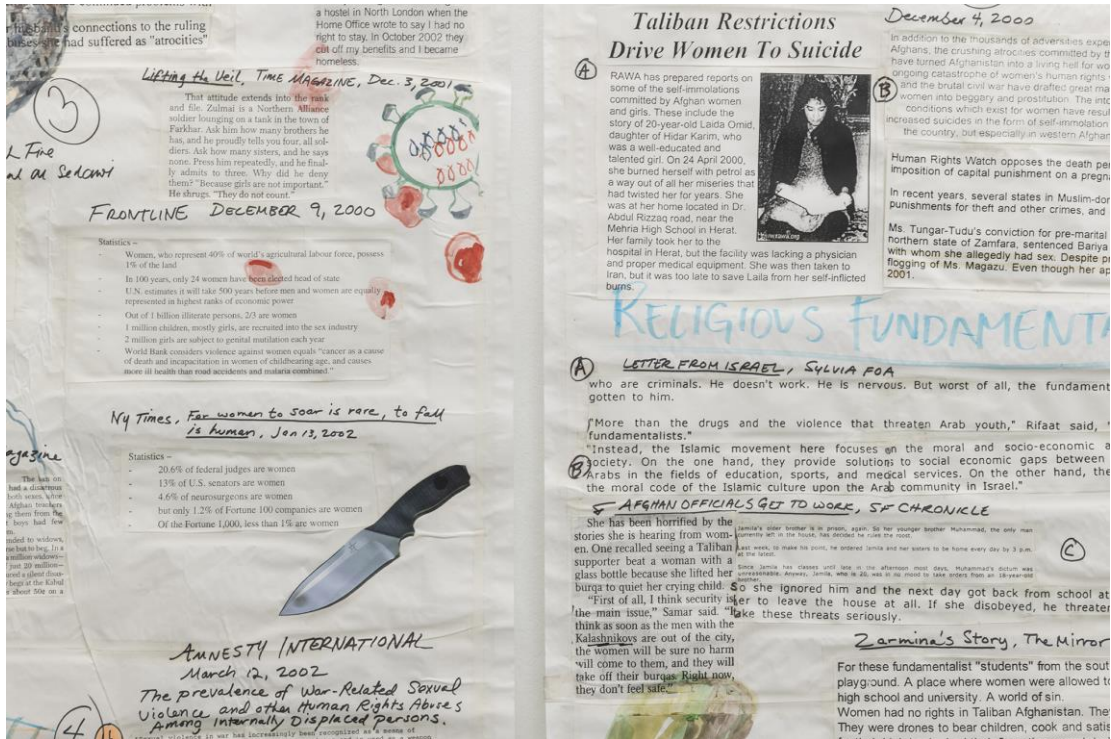 r husband's connections to the ruling
buses she had suffered as "atrocities"
a hostel in North London when the
Home Office wrote to say I had no
right to stay. In October 2002 they
cut off my benefits and I became
homeless.
Lifting the Veil, TIME MAGAZINE, Dec. 3, 2001
3
That attitude extends into the rank
and file. Zulmai is a Northern Alliance
soldier lounging on a tank in the town of
Farkhar. Ask him how many brothers he
has, and he proudly tells you four, all sol-
diers. Ask how many sisters, and he says
none. Press him repeatedly, and he final-
ly admits to three. Why did he deny
them? "Because girls are not important."
He shrugs. "They do not count."
FRONTLINE DECEMBER 9, 2000
Statistics –
- Women, who represent 40% of world's agricultural labour force, possess
1% of the land
- In 100 years, only 24 women have been elected head of state
- U.N. estimates it will take 500 years before men and women are equally
represented in highest ranks of economic power
- Out of 1 billion illiterate persons, 2/3 are women
- 1 million children, mostly girls, are recruited into the sex industry
- 2 million girls are subject to genital mutilation each year
World Bank considers violence against women equals "cancer as a cause
of death and incapacitation in women of childbearing age, and causes
more ill health than road accidents and malaria combined."
Ny Times, For women to soar is rare, to fall
is human, Jan 13, 2002
Statistics –
- 20.6% of federal judges are women
- 13% of U.S. senators are women
- 4.6% of neurosurgeons are women
- but only 1.2% of Fortune 100 companies are women
- Of the Fortune 1,000, less than 1% are women
agazine
The
had a disastrous
both sexes, since
Afghan teachers
ng them from the
t boys had few
en.
nded to widows,
rse but to beg. In a
a million widows–
just 20 million–
ured a silent
begs at the Kabul
s about 50¢ on a
AMNESTY INTERNATIONAL
March 12, 2002
The prevalence of War-Related Sexual
Violence and other Human Rights Abuses
Among Internally Displaced persons.
4
Taliban Restrictions
Drive Women To Suicide
A
RAWA has prepared reports on
some of the self-immolations
committed by Afghan women
and girls. These include the
story of 20-year-old Laida Omid,
daughter of Hidar Karim, who
was a well-educated and
talented girl. On 24 April 2000,
she burned herself with petrol as
a way out of all her miseries that
had twisted her for years. She
was at her home located in Dr.
Abdul Rizzaq road, near the
Mehria High School in Herat.
Her family took her to the
hospital in Herat, but the facility was lacking a physician
and proper medical equipment. She was then taken to
Iran, but it was too late to save Laila from her self-inflicted
burns.
December 4, 2000
In addition to the thousands of adversities expe
Afghans, the crushing atrocities committed by th
have turned Afghanistan into a living hell for wo
ongoing catastrophe of women's human rights
B
and the brutal civil war have drafted great ma
women into beggary and prostitution. The
conditions which exist for women have resul
increased suicides in the form of self-immolation
the country, but especially in western Afghan
Human Rights Watch opposes the death pen
imposition of capital punishment on a pregna
In recent years, several states in Muslim-dor
punishments for theft and other crimes, and
Ms. Tungar-Tudu's conviction for pre-marital
northern state of Zamfara, sentenced Bariya
with whom she allegedly had sex. Despite pr
flogging of Ms. Magazu. Even though her ap
2001.
RELIGIOUS FUNDAMENTA
A
LETTER FROM ISRAEL, SYLVIA FOA
who are criminals. He doesn't work. He is nervous. But worst of all, the fundament
gotten to him.
"More than the drugs and the violence that threaten Arab youth," Rifaat said, "
fundamentalists."
"Instead, the Islamic movement here focuses on the moral and socio-economic a
B
society. On the one hand, they provide solutions to social economic gaps between
Arabs in the fields of education, sports, and medical services. On the other hand, the
the moral code of the Islamic culture upon the Arab community in Israel."
AFGHAN OFFICIALS GET TO WORK, SF CHRONICLE
She has been horrified by the
stories she is hearing from wom-
en. One recalled seeing a Taliban
supporter beat a woman with a
glass bottle because she lifted her
burqa to quiet her crying child.
"First of all, I think security is
the main issue," Samar said. "I
think as soon as the men with the
Kalashnikovs are out of the city,
the women will be sure no harm
will come to them, and they will
take off their burqas. Right now,
they don't feel safe."
Jamila's older brother is in prison, again. So her younger brother Muhammad, the only man
currently left in the house, has decided he rules the roost.
Last week, to make his point, he ordered Jamila and her sisters to be home every day by 3 p.m.
at the latest.
Since Jamila has classes until late in the afternoon most days, Muhammad's dictum was
unreasonable. Anyway, Jamila, who is 20, was in no mood to take orders from an 18-year-old
brother.
C
So she ignored him and the next day got back from school at
her to leave the house at all. If she disobeyed, he threaten
take these threats seriously.
Zarmina's Story, The Mirror
For these fundamentalist "students" from the sout
playground. A place where women were allowed to
high school and university. A world of sin.
Women had no rights in Taliban Afghanistan. They
They were drones to bear children, cook and satis